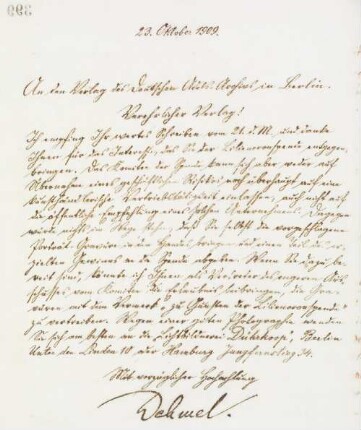 23. Oktober 1909.
An den Verlag des Deutschen Adels-Archivs in Berlin.
Verehrlicher Verlag!
Ich empfing Ihr wertes Schreiben vom 21. d. M. und danke
Ihnen für das Interesse, das Sie der Liliencronspende entgegen-
bringen. Das Komitee der Spende kann sich aber weder auf
Übernahme eines geschäftlichen Risikos, noch überhaupt auf eine
kunsthändlerische Vertriebstätigkeit einlassen, auch nicht auf
die öffentliche Empfehlung eines solchen Unternehmens. Dagegen
würde nichts im Wege stehn, daß Sie selbst die vorgeschlagene
Portrait-Gravüre in den Handel bringen und einen Teil des er-
zielten Gewinns an die Spende abgeben. Wenn Sie dazu be-
reit sind, könnte ich Ihnen als Vorsitzender des engeren Aus-
schusses vom Komitee die Erlaubnis beibringen, die Gra-
vüre mit dem Vermerk "zu Gunsten der Liliencronspende"
zu vertreiben. Wegen einer guten Photographie wenden
Sie sich am besten an die Lichtbildnerei Dührkoop, Berlin
Unter den Linden 10 oder Hamburg Jungfernstieg 34.
Mit vorzüglicher Hochachtung
Dehmel.